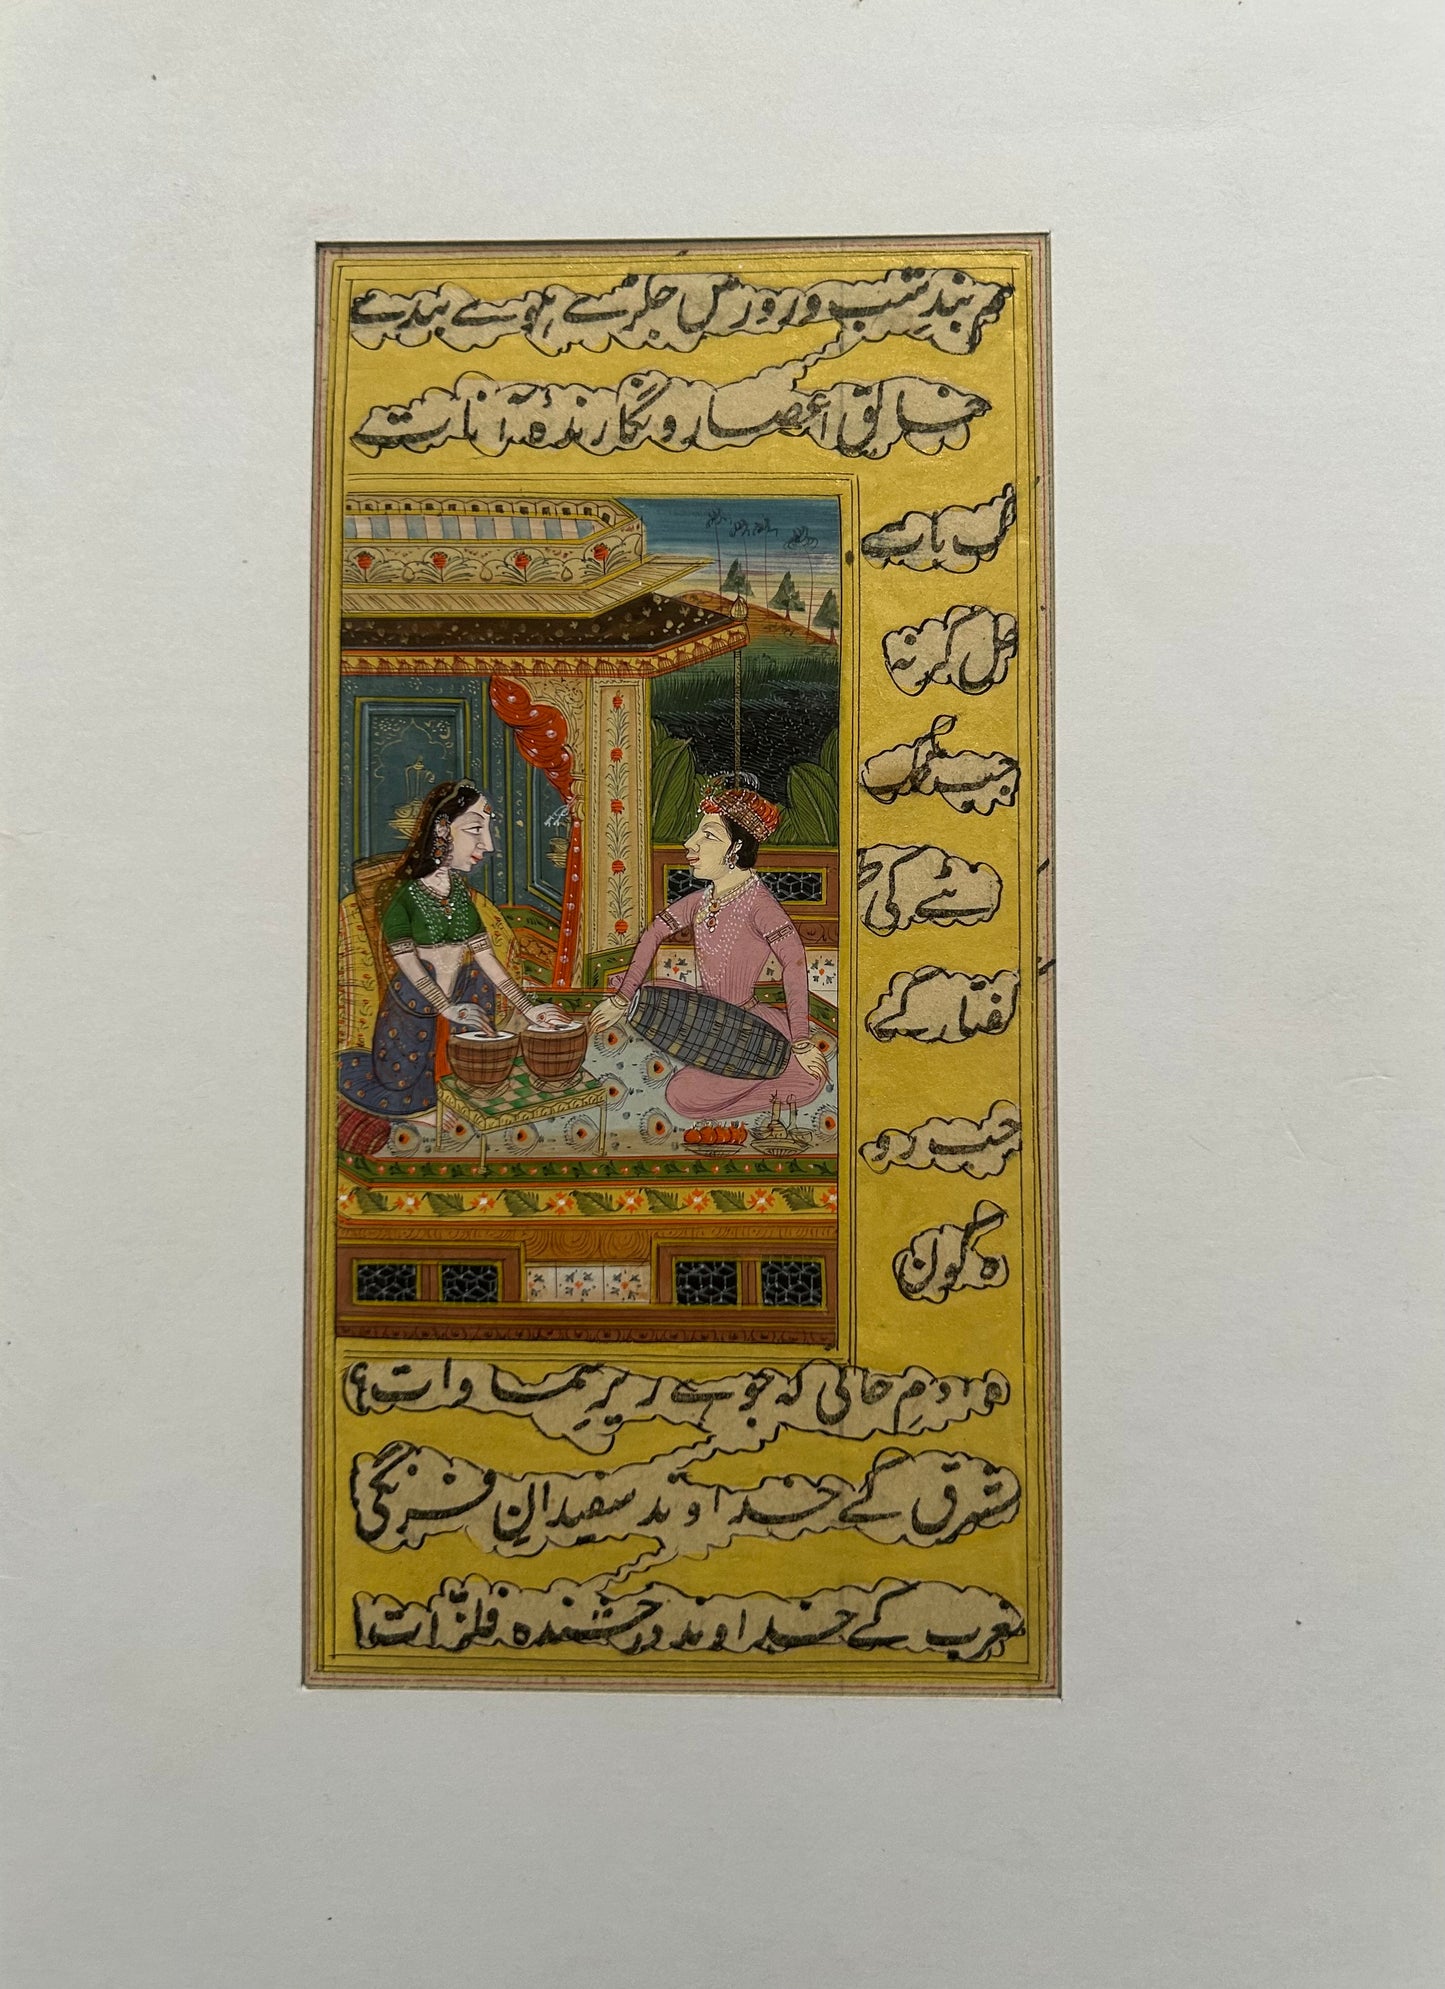 ہم بندِ شب و روز میں جکڑے ہوئے بندے
خالق اعصار و نگارندۂ آنات
ک بات
ل کر نہ
جب تک
نٹے کی
فتار کے
جب رو
ہ کون
ہ آدمِ خاکی کہ جو ہے زیرِ سماوات؟
مشرق کے خداوند سفیدانِ فرنگی
مغرب کے خداوند درخشندہ فلزّات